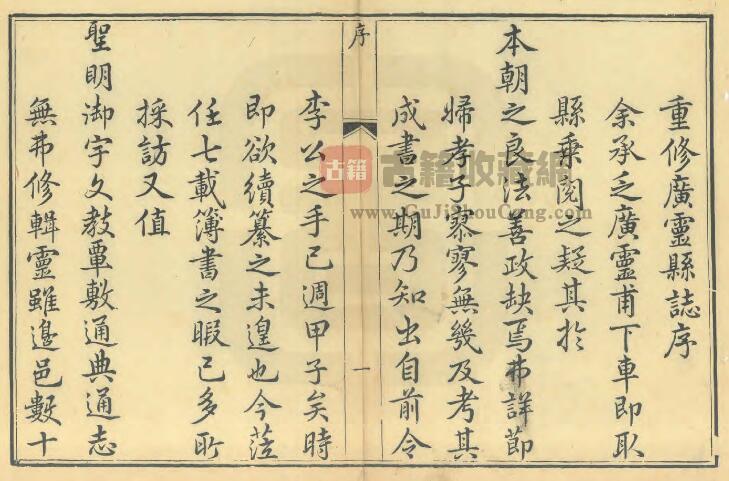 重修廣靈縣誌序
余承乏廣靈甫下車即取
縣乗閱之疑其於
本朝之良法善政缺焉弗詳節
婦孝子寥寥無幾及考其
成書之期乃知出自前令
序
一
李公之手已週甲子矣時
即欲續纂之未遑也今蒞
任七載簿書之暇已多所
採訪又值
聖明御宇文教覃敷通典通志
無弗修輯靈雖邊邑數十
古籍
古籍收藏網
www.GuJiShouCang.com